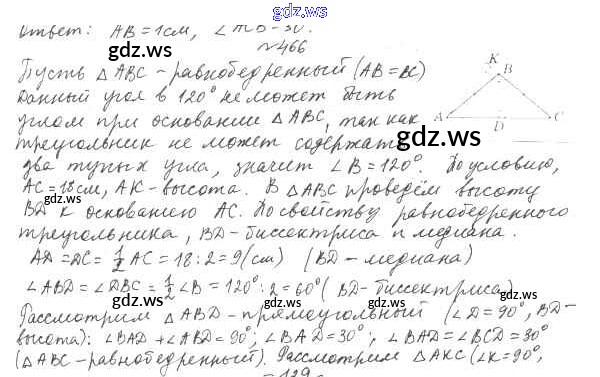 Ответ: AB = 1 см,
№466
Пусть △ABC - равнобедренный (AB = BC)
Данный угол в 120° не может быть
углом при основании △ABC, так как
треугольник не может содержать
два тупых угла, значит ∠B = 120°. По условию,
AC = 18 см, AK - высота. В △ABC проведём высоту
BD к основанию AC. По свойству равнобедренного
треугольника, BD - биссектриса и медиана.
AD = DC = 1/2 AC = 18 : 2 = 9 (см) (BD - медиана)
∠ABD = ∠DBC = 1/2 ∠B = 120° : 2 = 60° (BD - биссектриса)
Рассмотрим △ABD - прямоугольный (∠D = 90°, BD -
высота): ∠BAD + ∠ABD = 90°; ∠BAD = 30°; ∠BAD = ∠BCD = 30°
(△ABC - равнобедренный). Рассмотрим △AKC (∠K = 90°,
- 129
K
B
A
D
C
gdz.ws
gdz.ws
gdz.ws
gdz.ws
gdz.ws
gdz.ws
gdz.ws
gdz.ws
gdz.ws
gdz.ws
gdz.ws